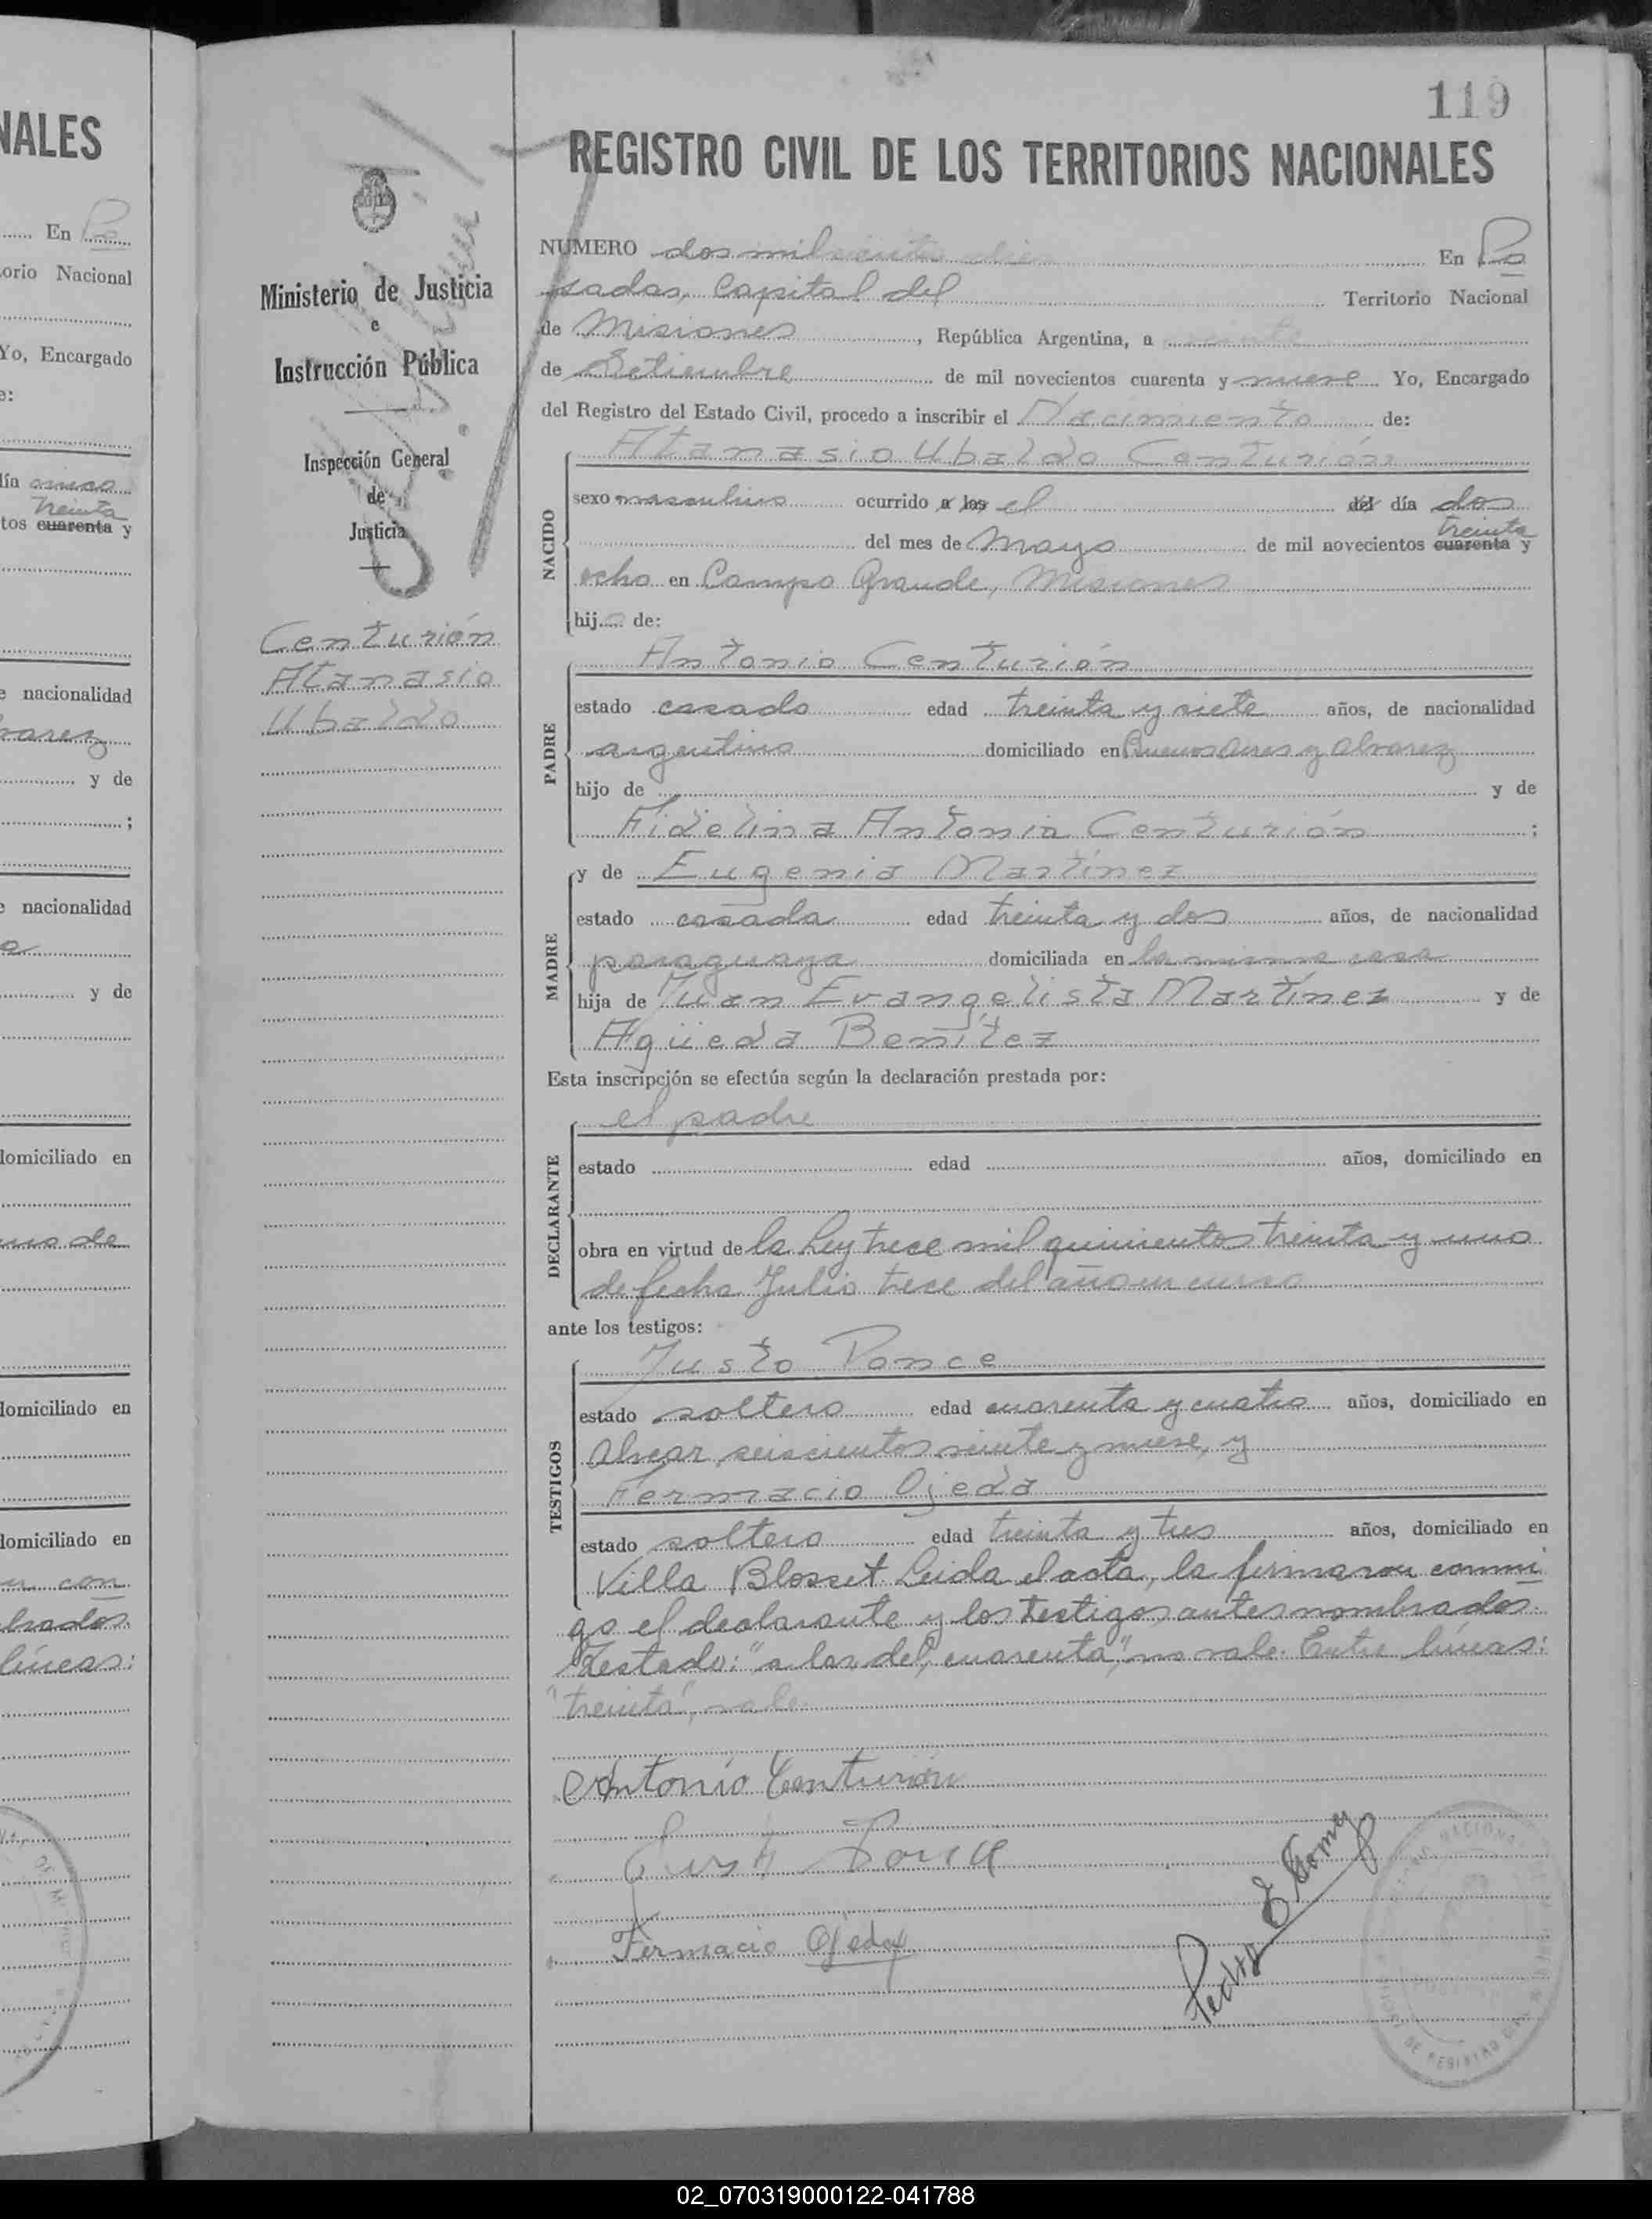 NALES
En Po
orio Nacional
Yo, Encargado
e:
día cinco
treinta
tos cuarenta y
e nacionalidad
varez
y de
;
e nacionalidad
y de
domiciliado en
uno de
domiciliado en
domiciliado en
con
brados
líneas:
119
REGISTRO CIVIL DE LOS TERRITORIOS NACIONALES
Ministerio de Justicia
e
Instrucción Pública
Inspección General
de
Justicia
Centurión
Atanasio
Ubaldo
NUMERO dos mil ciento diez En Po
sadas, Capital del Territorio Nacional
de Misiones, República Argentina, a
de Setiembre de mil novecientos cuarenta y nueve Yo, Encargado
del Registro del Estado Civil, procedo a inscribir el Nacimiento de:
NACIDO
Atanasio Ubaldo Centurión
sexo masculino ocurrido a las el del día dos
treinta
del mes de Mayo de mil novecientos cuarenta y
ocho en Campo Grande, Misiones
hijo de:
PADRE
Antonio Centurión
estado casado edad treinta y siete años, de nacionalidad
argentino domiciliado en Buenos Aires y Alvarez
hijo de y de
Fidelina Antonia Centurión ;
MADRE
y de Eugenia Martínez
estado casada edad treinta y dos años, de nacionalidad
paraguaya domiciliada en la misma casa
hija de Juan Evangelista Martínez y de
Agüeda Benítez
Esta inscripción se efectúa según la declaración prestada por:
DECLARANTE
el padre
estado edad años, domiciliado en
obra en virtud de la Ley trece mil quinientos treinta y uno
de fecha Julio trece del año en curso
ante los testigos:
TESTIGOS
Justo Ponce
estado soltero edad cuarenta y cuatro años, domiciliado en
Alvear seiscientos veinte y nueve, y
Fermacio Ojeda
estado soltero edad treinta y tres años, domiciliado en
Villa Blosset Leida el acta, la firmaron conmi
go el declarante y los testigos antes nombrados.
Testado: "a las, del, cuarenta", no vale. Entre líneas:
"treinta", vale.
Antonio Centurión
Justo Ponce
Fermacio Ojeda
Pedro E Gomez
02_070319000122-041788